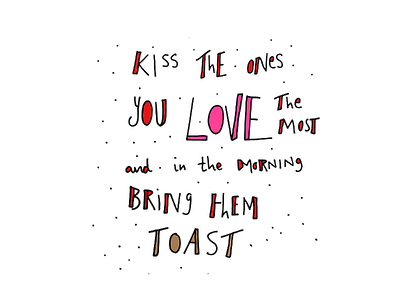 KISS ThE ONeS
YOU LOVE The MOST
and in the MORNING
BRiNg ThEM
TOAST